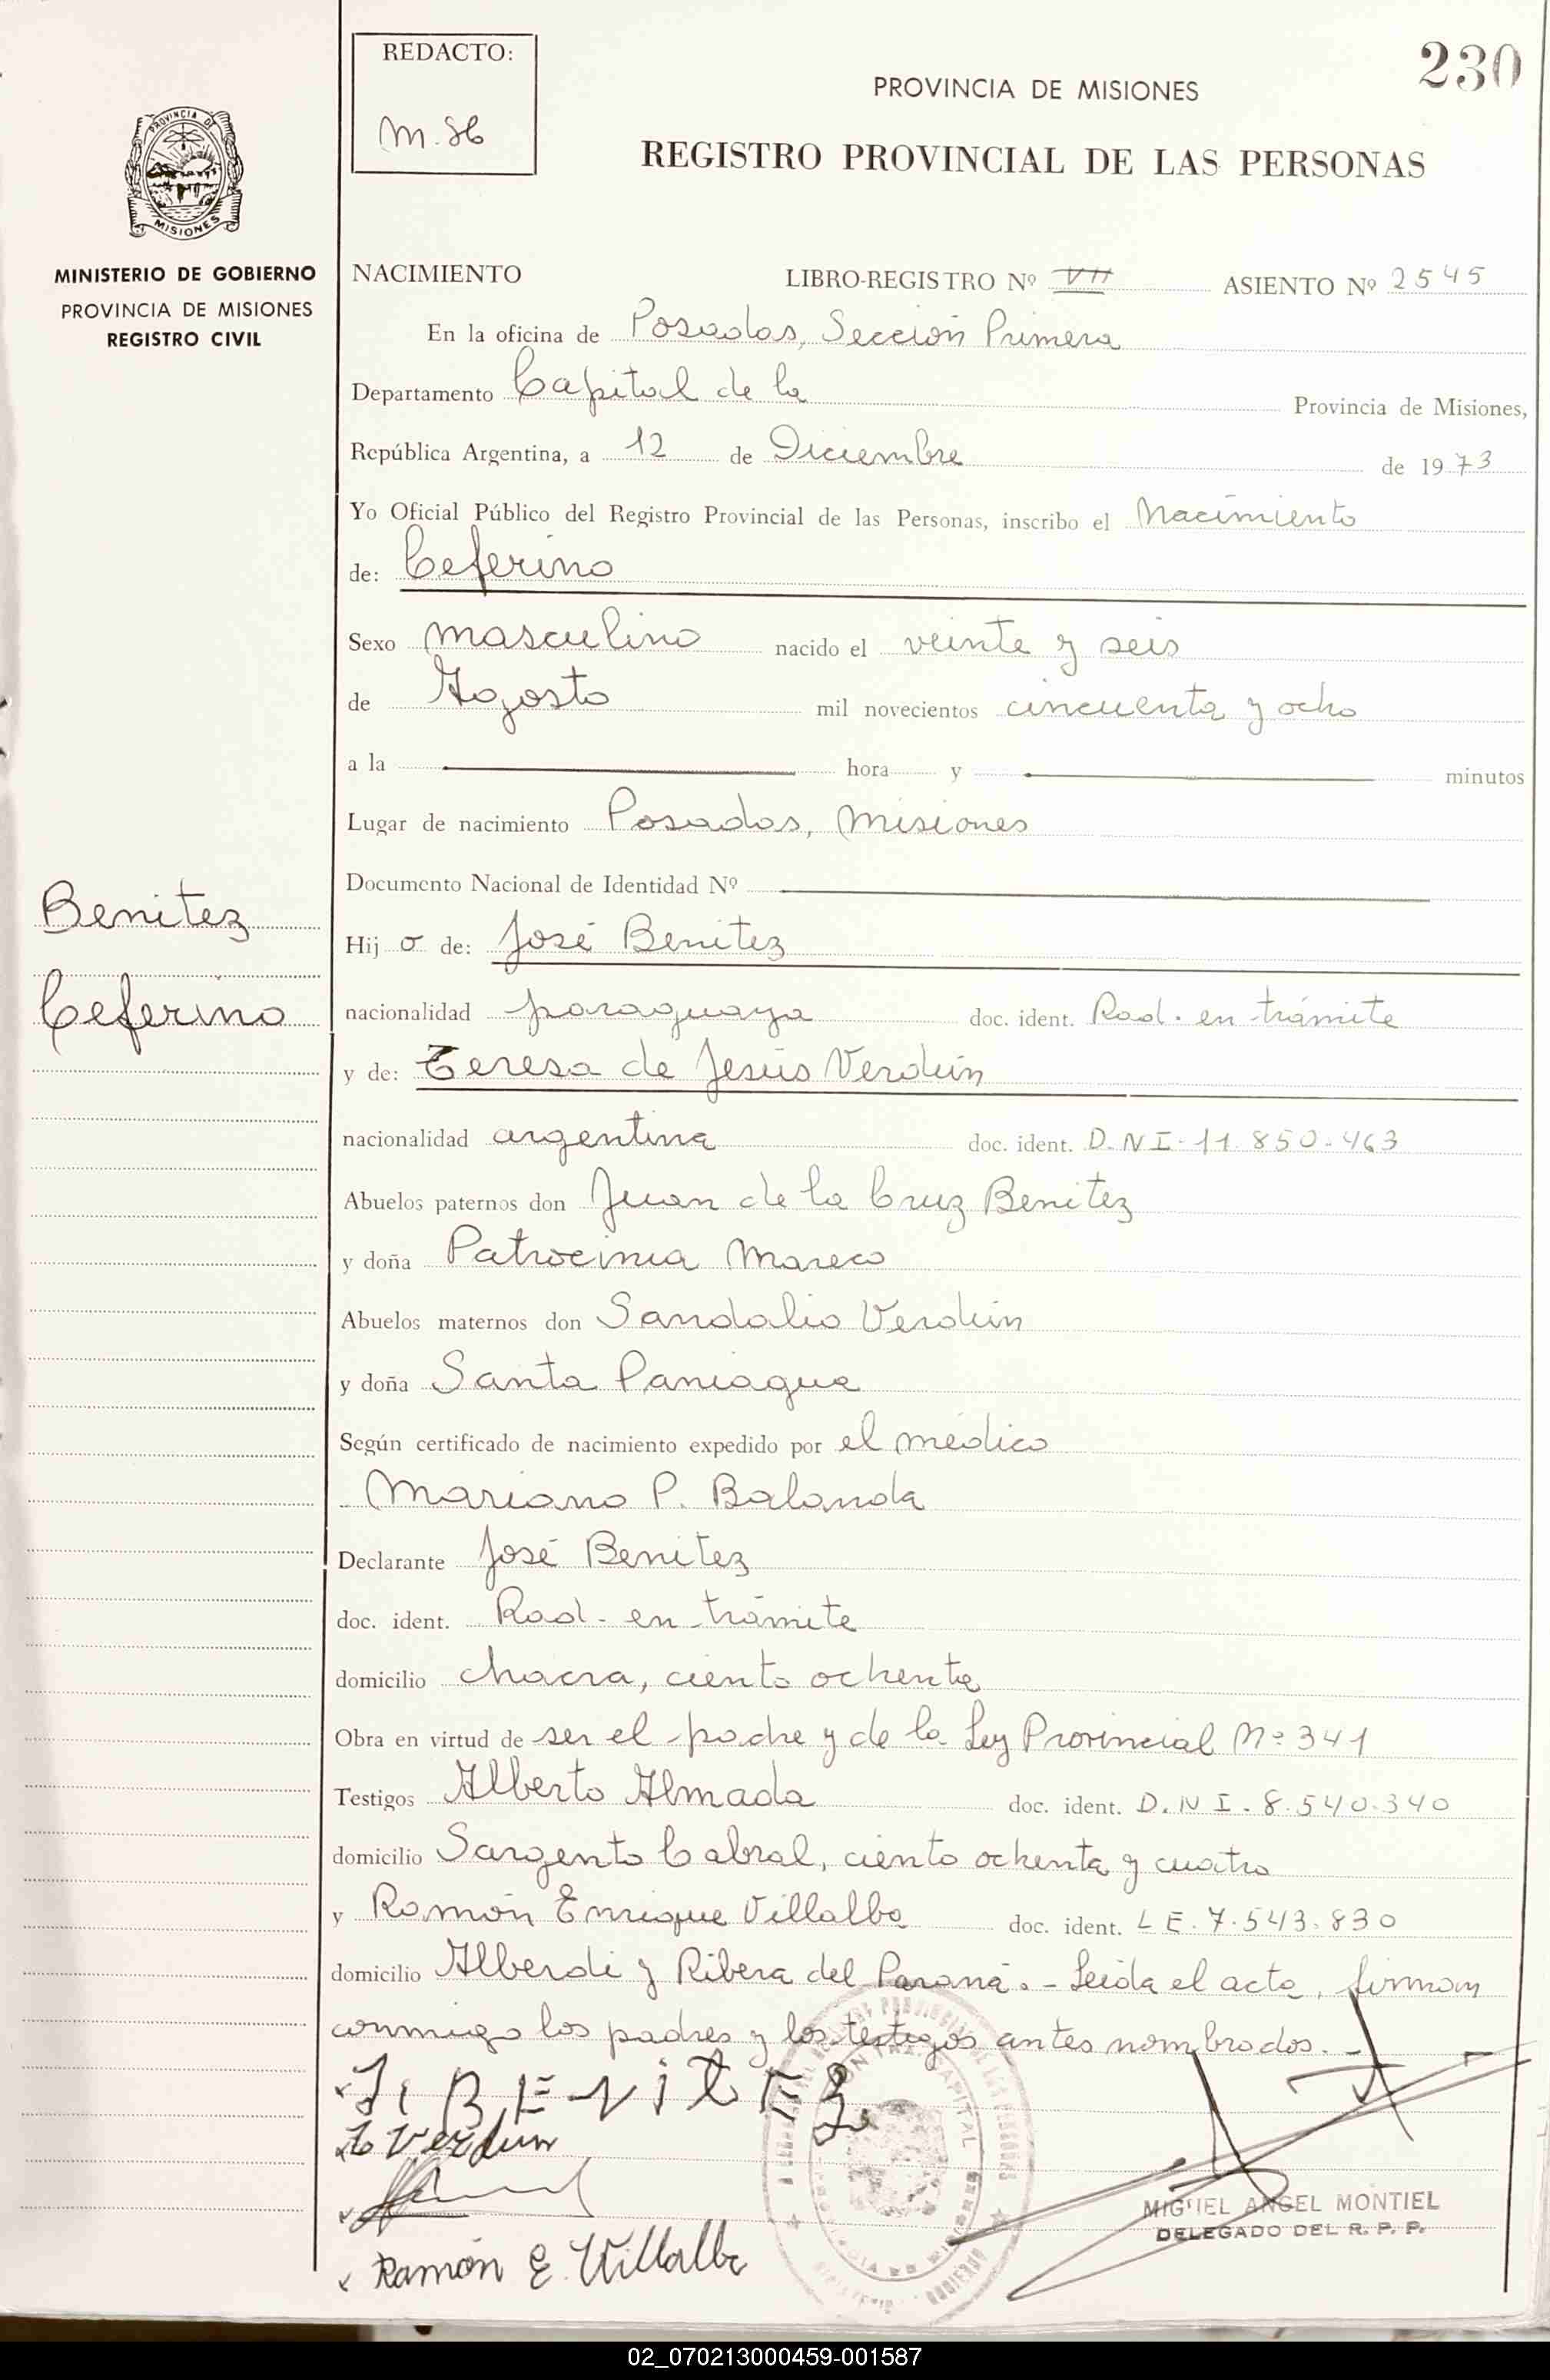 REDACTO:
M. SB
230
PROVINCIA DE MISIONES
REGISTRO PROVINCIAL DE LAS PERSONAS
PROVINCIA DE
MISIONES
MINISTERIO DE GOBIERNO
PROVINCIA DE MISIONES
REGISTRO CIVIL
NACIMIENTO LIBRO-REGISTRO Nº VII ASIENTO Nº 2545
En la oficina de Posadas, Sección Primera
Departamento Capital de la Provincia de Misiones,
República Argentina, a 12 de Diciembre de 1973
Yo Oficial Público del Registro Provincial de las Personas, inscribo el Nacimiento
de: Ceferino
Sexo masculino nacido el veinte y seis
de Agosto mil novecientos cincuenta y ocho
a la hora y minutos
Lugar de nacimiento Posadas, Misiones
Documento Nacional de Identidad Nº
Benitez
Ceferino
Hijo de: José Benitez
nacionalidad paraguaya doc. ident. Rad. en trámite
y de: Teresa de Jesús Verdún
nacionalidad argentina doc. ident. D.N.I. 11.850.463
Abuelos paternos don Juan de la Cruz Benitez
y doña Patrocinia Mareco
Abuelos maternos don Sandalio Verdún
y doña Santa Paniagua
Según certificado de nacimiento expedido por el médico
Mariano P. Balanda
Declarante José Benitez
doc. ident. Rad. en trámite
domicilio chacra, ciento ochenta
Obra en virtud de ser el padre y de la Ley Provincial Nº 341
Testigos Alberto Almada doc. ident. D.N.I. 8.540.340
domicilio Sargento Cabral, ciento ochenta y cuatro
y Ramón Enrique Villalba doc. ident. L.E. 7.543.830
domicilio Alberdi y Ribera del Paraná.- Leída el acta, firman
conmigo los padres y los testigos antes nombrados.-
J. BENiTEZ
Verdun
Ramón E. Villalba
MIGUEL ANGEL MONTIEL
DELEGADO DEL R. P. P.
02_070213000459-001587